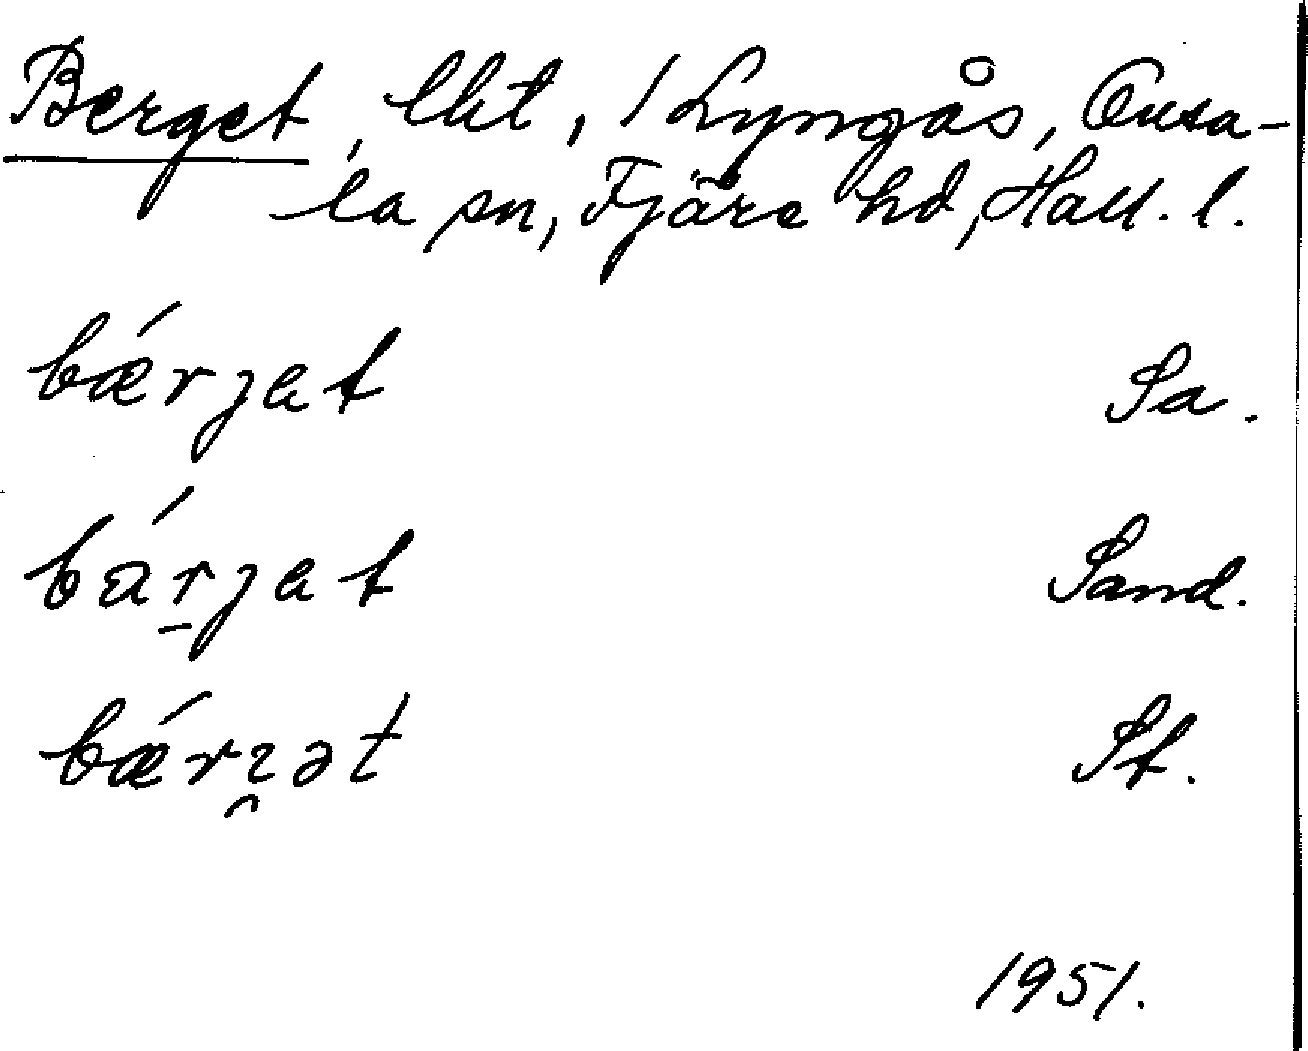 Berget, lht, 1 Lyngås, Onsa-
la sn, Fjäre hd, Hall. l.
bǽrjat Sa.
bár̠jat Sand.
bǽrɿ̯ət St.
1951.